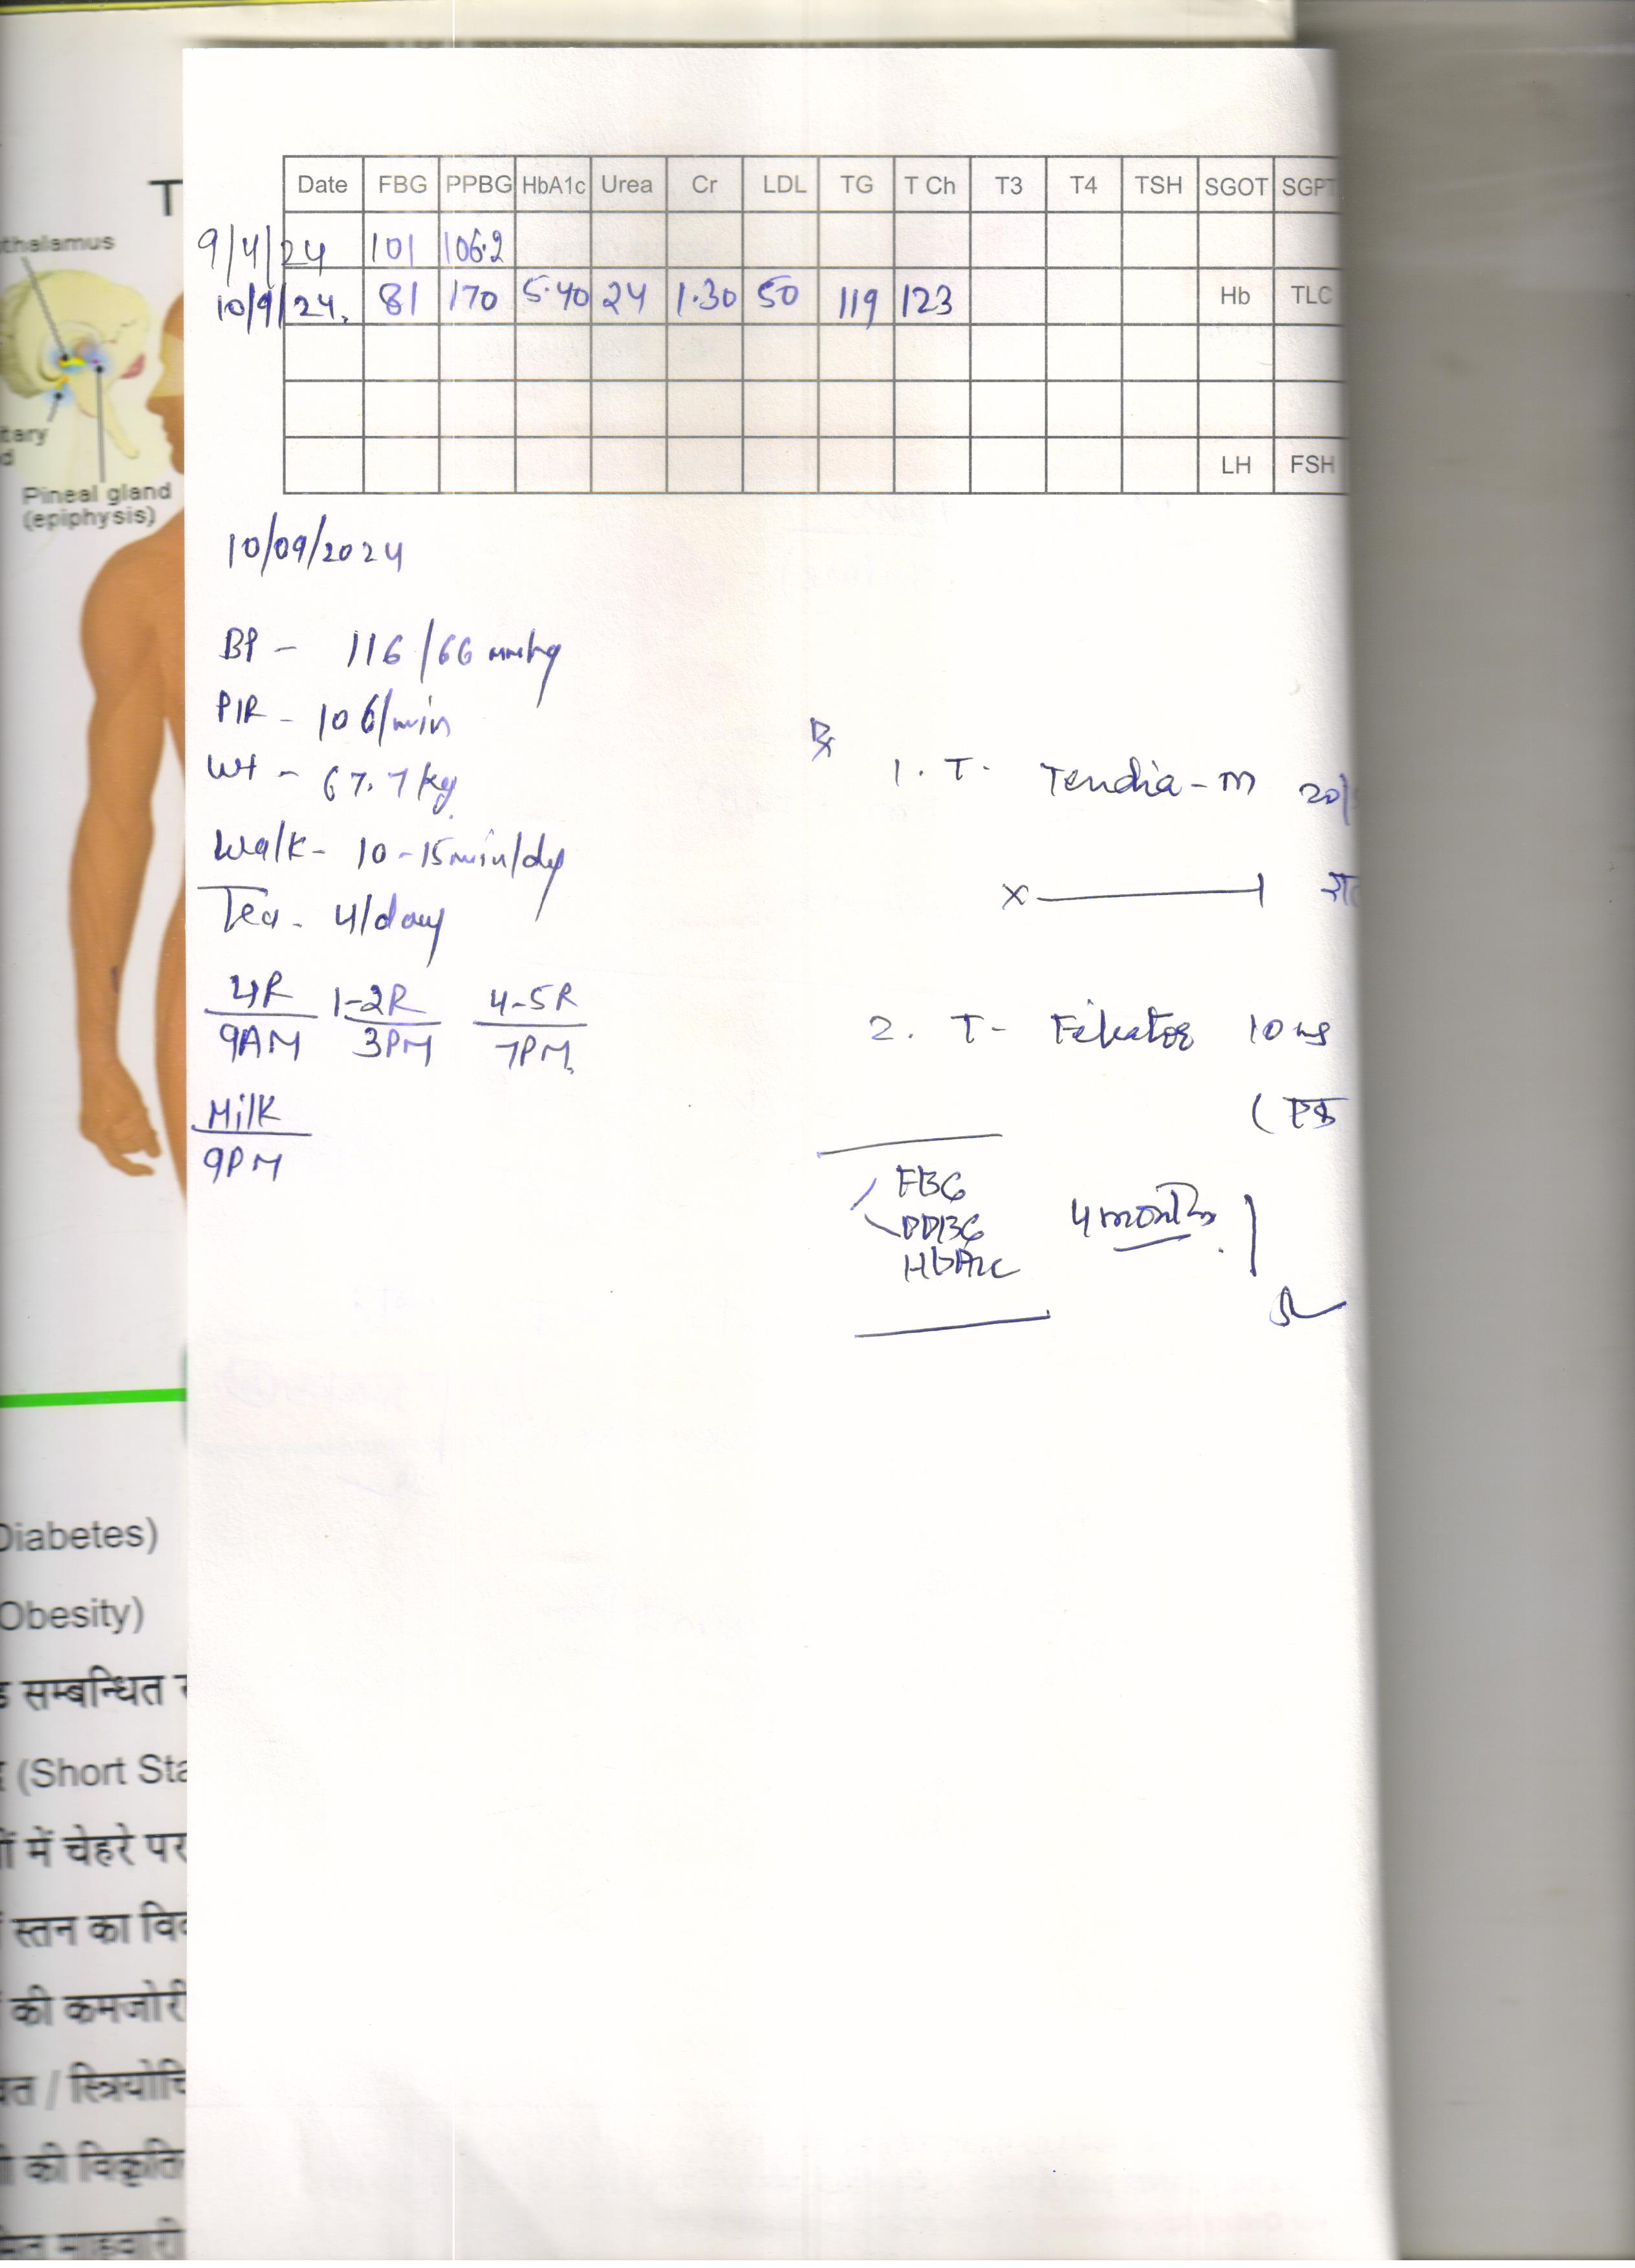 T
thalamus
tary
d
Pineal gland
(epiphysis)
Date FBG PPBG HbA1c Urea Cr LDL TG T Ch T3 T4 TSH SGOT SGPT
9/4/24 101 106.2
10/9/24. 81 170 5.40 24 1.30 50 119 123 Hb TLC
LH FSH
10/09/2024
BP - 116/66 mmhg
P/R - 106/min
Wt - 67.7 kg
Walk - 10-15 min/day
Tea - 4/day
4R 1-2R 4-5R
9AM 3PM 7PM
Milk
9PM
Rx
1. T. Tendia-M 20/
x
2. T- 10 mg
FBG
PPBG 4 months
HbA1c
Diabetes)
Obesity)
सम्बन्धित
(Short Sta
में चेहरे पर
स्तन का वि
की कमजोरी
/ स्त्रियोचि
की विकृति
माहवारी